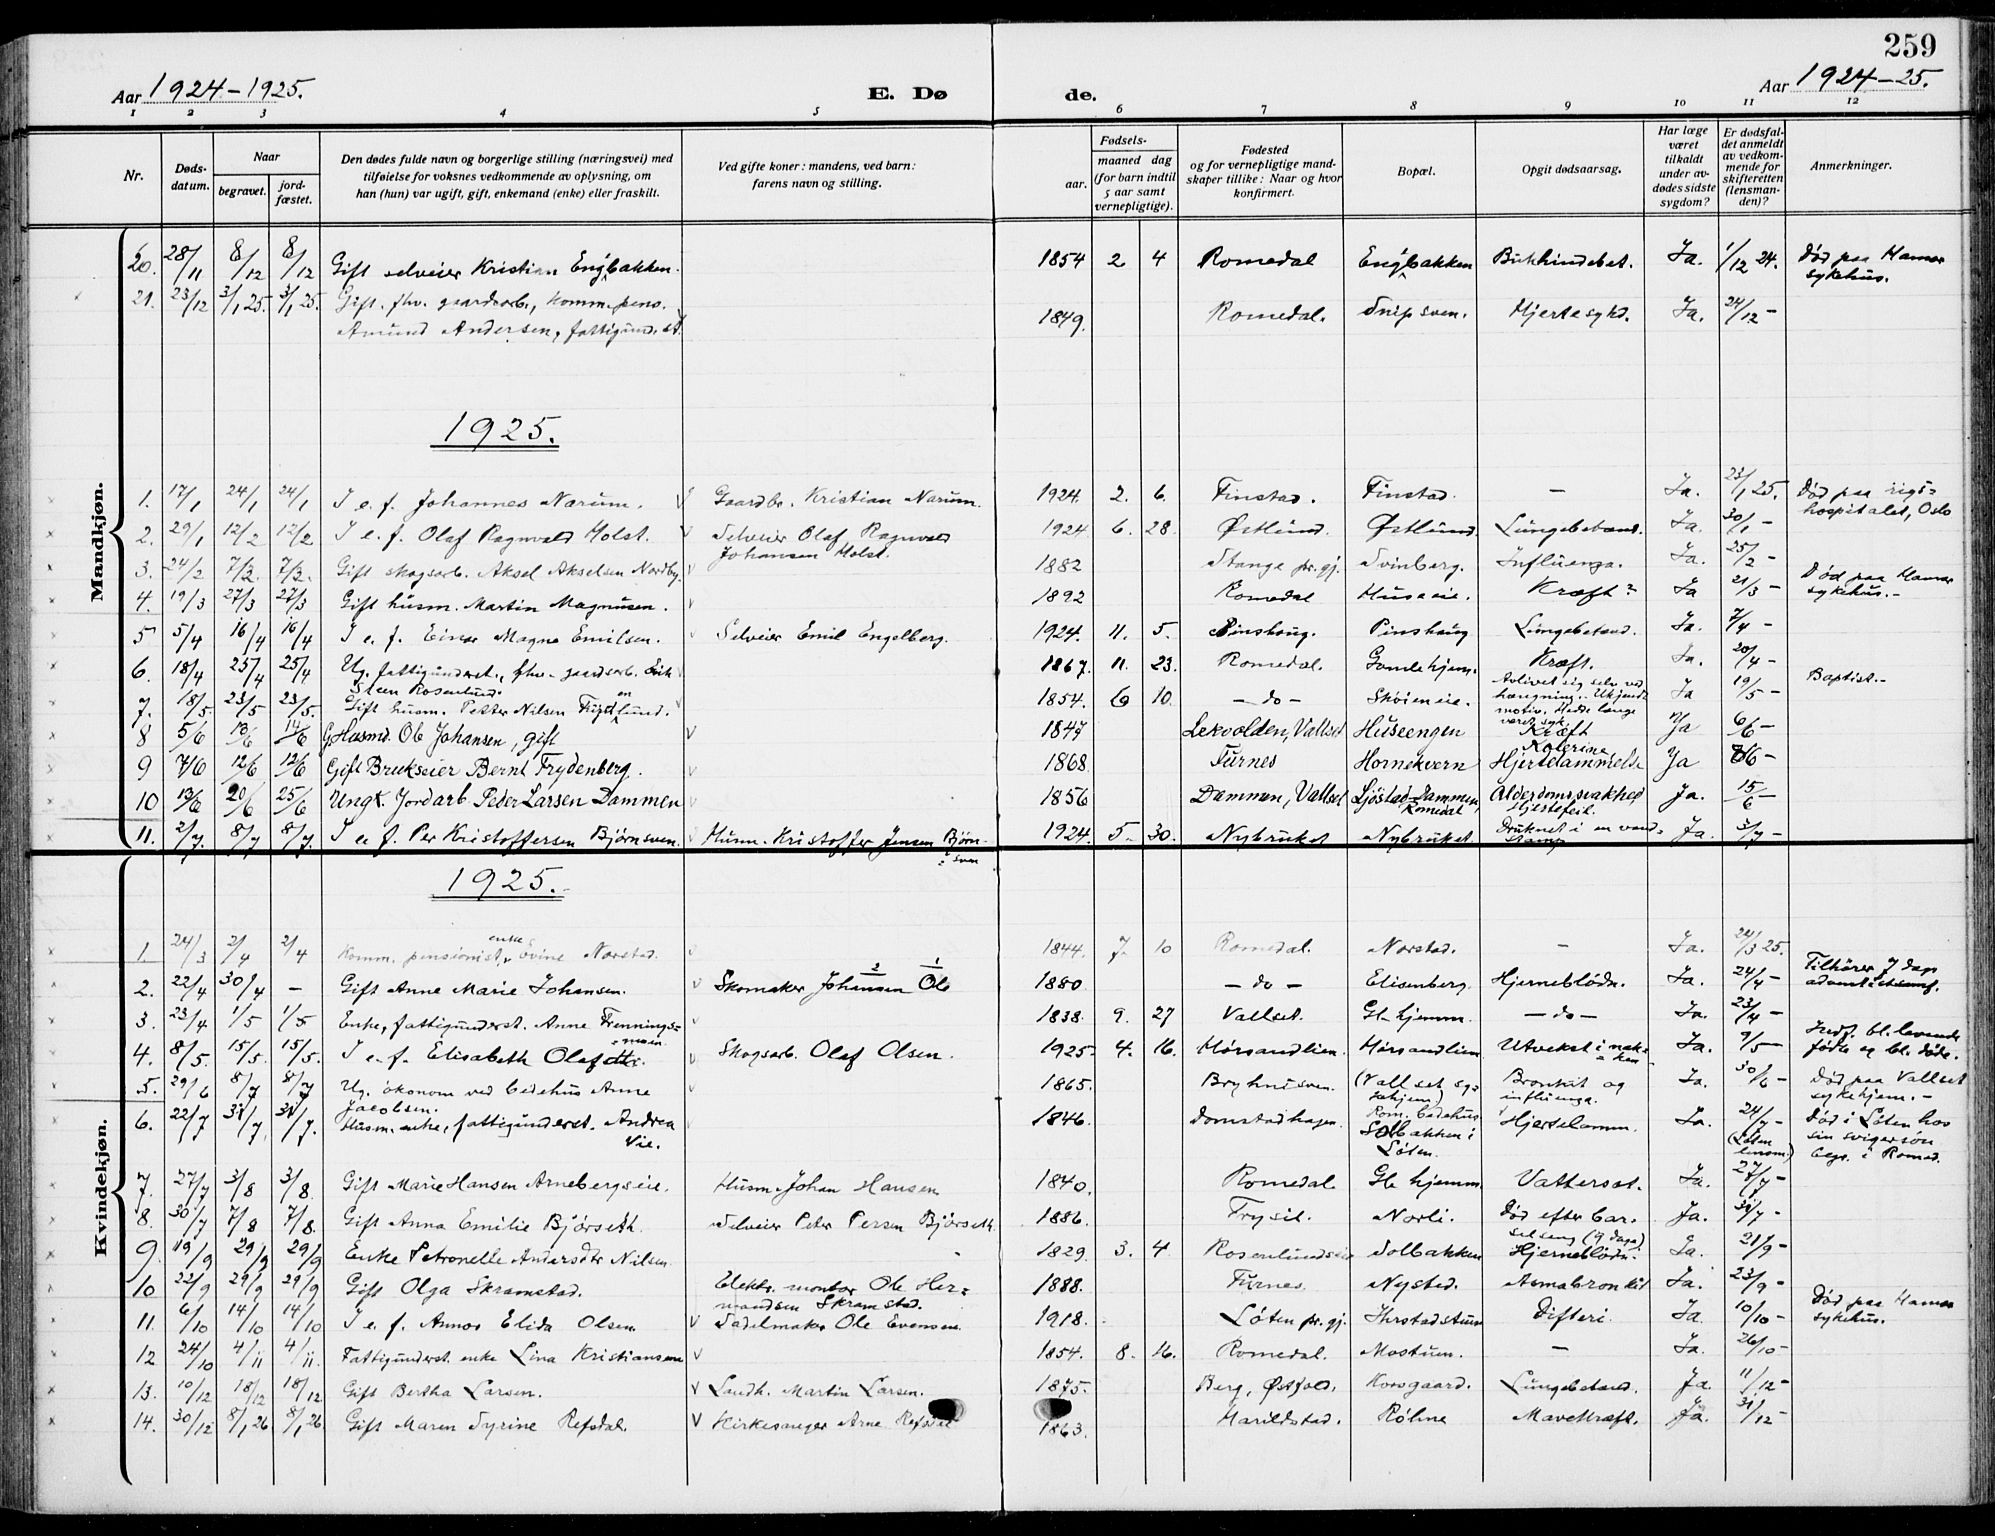 259
Aar 1924-1925. E. Dø de. Aar 1924-25.
1 2 3 4 5 6 7 8 9 10 11 12
Nr. Døds-datum. Naar begravet. jord-fæstet. Den dødes fulde navn og borgerlige stilling (næringsvei) med tilføielse for voksnes vedkommende av oplysning, om han (hun) var ugift, gift, enkemand (enke) eller fraskilt. Ved gifte koner: mandens, ved barn: farens navn og stilling. Fødsels- aar. maaned dag (for barn indtil 5 aar samt vernepligtige). Fødested og for vernepligtige mandskaper tillike: Naar og hvor konfirmert. Bopæl. Opgit dødsaarsag. Har læge været tilkaldt under avdødes sidste sygdom? Er dødsfaldet anmeldt av vedkommende for skifteretten (lensmanden)? Anmerkninger.
Mandkjøn.
20. 28/11 8/12 8/12 Gift selveier Kristian Engbakken. 1854 2 4 Romedal Engbakken Bukhindebet. Ja. 1/12 24. Død paa Hamar sykehus.
21. 23/12 3/1 25. 3/1 25. Gift. fhv. gaardsarb., komm. pens. Amund Andersen, fattigund.st. 1849. Romedal. Snipsven. Hjertesykd. Ja. 24/12 -
1925.
1. 17/1 24/1 24/1 I e. f. Johannes Narum. Gaardbr. Kristian Narum. 1924. 2. 6. Finstad. Finstad. - Ja. 23/1 25. Død paa rigshospitalet, Oslo
2. 29/1 12/2 12/2 I e. f. Olaf Ragnvald Holst. Selveier Olaf Ragnvald Johansen Holst. 1924 6. 28. Østlund. Østlund. Lungebetænd. Ja. 30/1 -
3. 24/2 7/3. 7/3. Gift skogsarb. Aksel Akselsen Nordby. 1882 Stange pr.gj. Svinberg. Influenza. Ja. 25/2 -
4. 19/3 27/3 27/3 Gift husm. Martin Magnusen. 1892 Romedal Huseeie. Kræft? Ja 21/3 - Død paa Hamar sykehus.-
5 5/4 16/4 16/4 I e. f. Einar Magne Emilsen. Selveier Emil Engelberg. 1924. 11. 5. Pinshaug. Pinshaug Lungebetænd. Ja. 7/4 -
6. 18/4 25/4 25/4 Ug. fattigunderst., fhv. gaardsarb. Erik Steen Rosenlund. 1867. 11. 23. Romedal. Gamlehjem. Kræft. Ja. 20/4 - Baptist.-
7. 18/5. 23/5 23/5. Gift husm. Petter Nilsen Frydenlund. 1854. 6 10. - do - Skøieneie. Avlivet sig selv ved hængning. Ukjendt motiv. Hadde længe været syk. Ja 19/5 -
8 5/6 13/6 14/6 Husmd. Ole Johansen, gift 1847 Lekvolden, Vallset Huseengen Kræft Ja 6/6 -
9 7/6 12/6 12/6 Gift Brukseier Bernt Frydenberg. 1868 Furnes Hornekvern Hjertelammelse Ja 8/6 -
10 13/6 20/6 25/6 Ungk. Jordarb Peder Larsen Dammen 1856 Dammen, Vallset Ljøstad-Dammen, Romedal Alderdomssvakhed Hjertefeil. Ja. 15/6 -
11. 2/7. 8/7 8/7. I e. f. Per Kristoffersen Bjørnsven. Husm. Kristoffer Jensen Bjørnsven 1924. 5- 30. Nybruket Nybruket. Druknet i en vanddamp Ja. 3/7 -
Kvindekjøn.
1925.
1. 24/3 2/4 2/4 Komm. pensionist, enke Evine Norstad. 1844. 7. 10 Romedal. Norstad. - Ja. 24/3 25.
2. 22/4 30/4 - Gift Anne Marie Johansen. Skomaker Johansen Ole 1880 - do - Elisenberg. Hjerneblødn. Ja. 24/4 - Tilhører 7 dags adventistsamf.
3. 23/4 1/5 1/5 Enke, fattigunderst. Anne Frenningsmoen 1838. 9. 27 Vallset. Gl. hjemm. - do - Ja. 23/4 -
4. 8/5. 15/5. 15/5. I e. f. Elisabeth Olafdtr. Skogsarb. Olaf Olsen. 1925. 4. 16. Mørsandlien. Mørsandlien Utvekst i nakken Ja. 9/5 - Indf. bl. levende fødte og bl. døde.
5. 29/6 8/7 8/7 Ug. økonom ved bedehus Anne Jacobsen. 1865. Bryhnisven. (Vallset sykehjem) Rom. bedehus. Bronkit og influenza. Ja. 30/6 - Død paa Vallset sykehjem.-
6. 22/7 31/7. 31/7. Husm. enke, fattigunderst. Andrea Vie. 1846. Domstadhagen. Solbakken i Løten. Hjertelamm. Ja. 24/7 - (Løten lensm.) Død i Løten hos sin svigersøn begr. i Romed.
7. 27/7 3/8 3/8. Gift Marie Hansen Arnebergseie. Husm. Johan Hansen 1840. Romedal Gl. hjemm. Vattersot. Ja. 27/7 -
8. 30/7 7/8 7/8. Gift Anna Emilie Bjørseth. Selveier Peter Persen Bjørseth 1886. Trysil. Norli. Død efter barselseng (9 daga) Ja. 31/7 -
9. 19/9 29/9 29/9 Enke Petronelle Andersdtr Nilsen. 1829. 3. 4 Rosenlundseie Solbakken Hjerneblødn. Ja. 21/9 -
10 22/9 29/9 29/9 Gift Olga Skramstad. Elektr. montør Ole Hermandsen Skramstad. 1888. Furnes. Nysted. Asmabronkit Ja. 23/9 -
11. 6/10 14/10 14/10 I e. f. Annar Elida Olsen. Sadelmaker Ole Evensen. 1918. Løten pr. gj. Difteri. Ja. 10/10 - Død paa Hamar sykehus.
12 24/10 4/11 4/11. Fattigunderst. enke Lina Kristiansen 1854. 8. 16. Romedal. Mostuen. - Ja. 26/10 -
13. 10/12 18/12 18/12. Gift Bertha Larsen. Landh. Martin Larsen. 1875. Berg, Østfold. Korsgaard. Lungebetænd. Ja. 11/12 -
14. 30/12 8/1 26. 8/1 26. Gift Maren Syrine Refsdal. Kirkesanger Arne Refsdal 1863. Harildstad. Røhne Mavekræft. Ja. 31/12 -